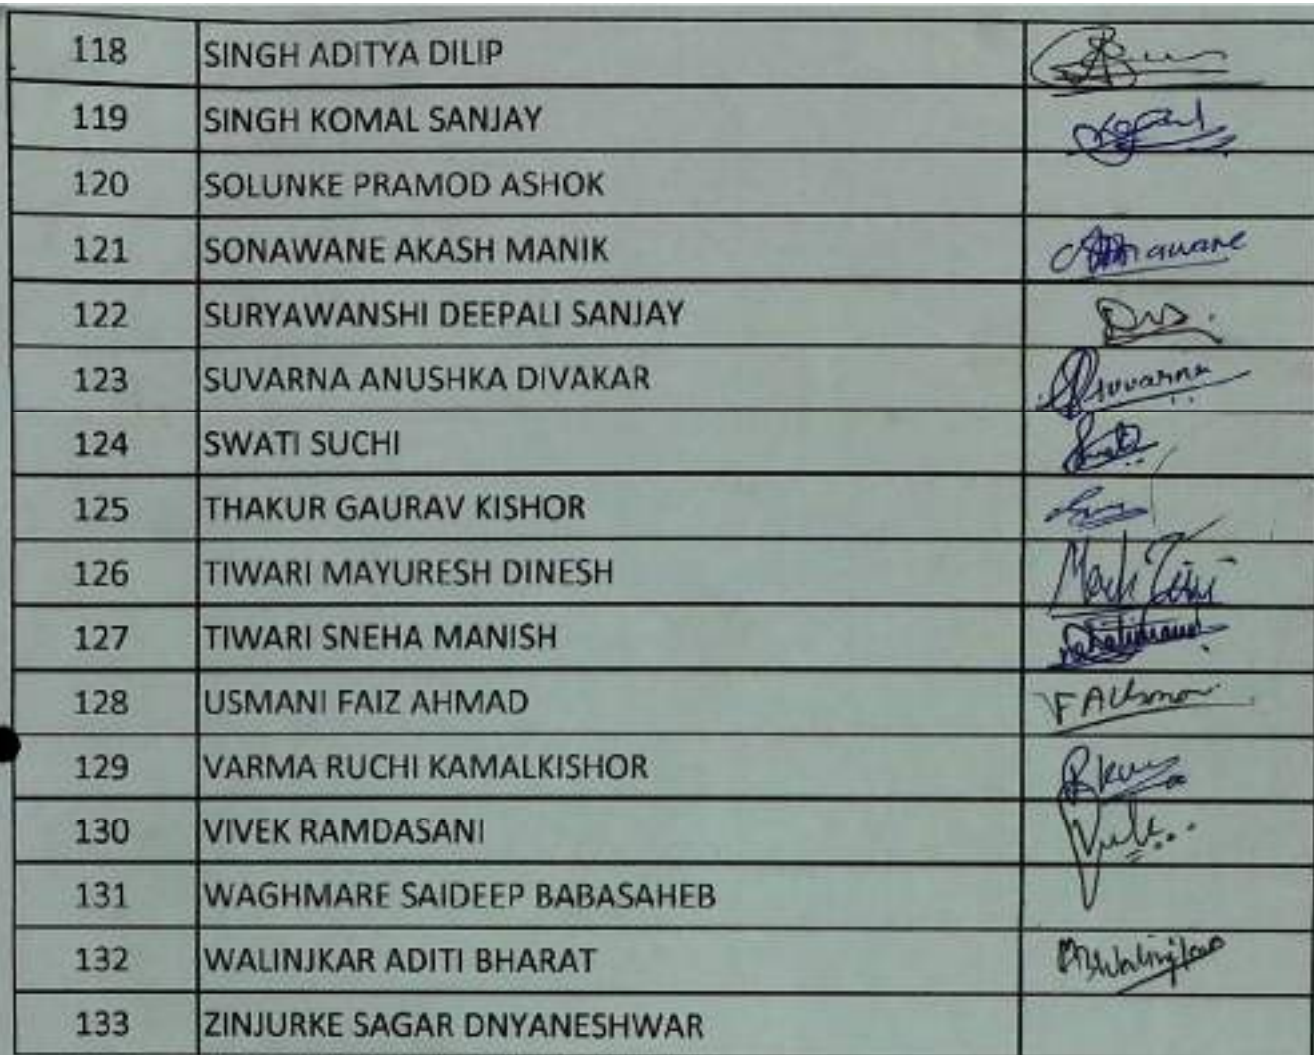 118 SINGH ADITYA DILIP
119 SINGH KOMAL SANJAY
120 SOLUNKE PRAMOD ASHOK
121 SONAWANE AKASH MANIK
122 SURYAWANSHI DEEPALI SANJAY
123 SUVARNA ANUSHKA DIVAKAR
124 SWATI SUCHI
125 THAKUR GAURAV KISHOR
126 TIWARI MAYURESH DINESH
127 TIWARI SNEHA MANISH
128 USMANI FAIZ AHMAD
129 VARMA RUCHI KAMALKISHOR
130 VIVEK RAMDASANI
131 WAGHMARE SAIDEEP BABASAHEB
132 WALINJKAR ADITI BHARAT
133 ZINJURKE SAGAR DNYANESHWAR